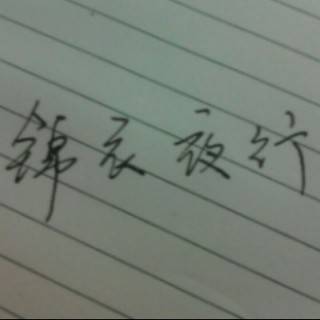 锦衣夜行